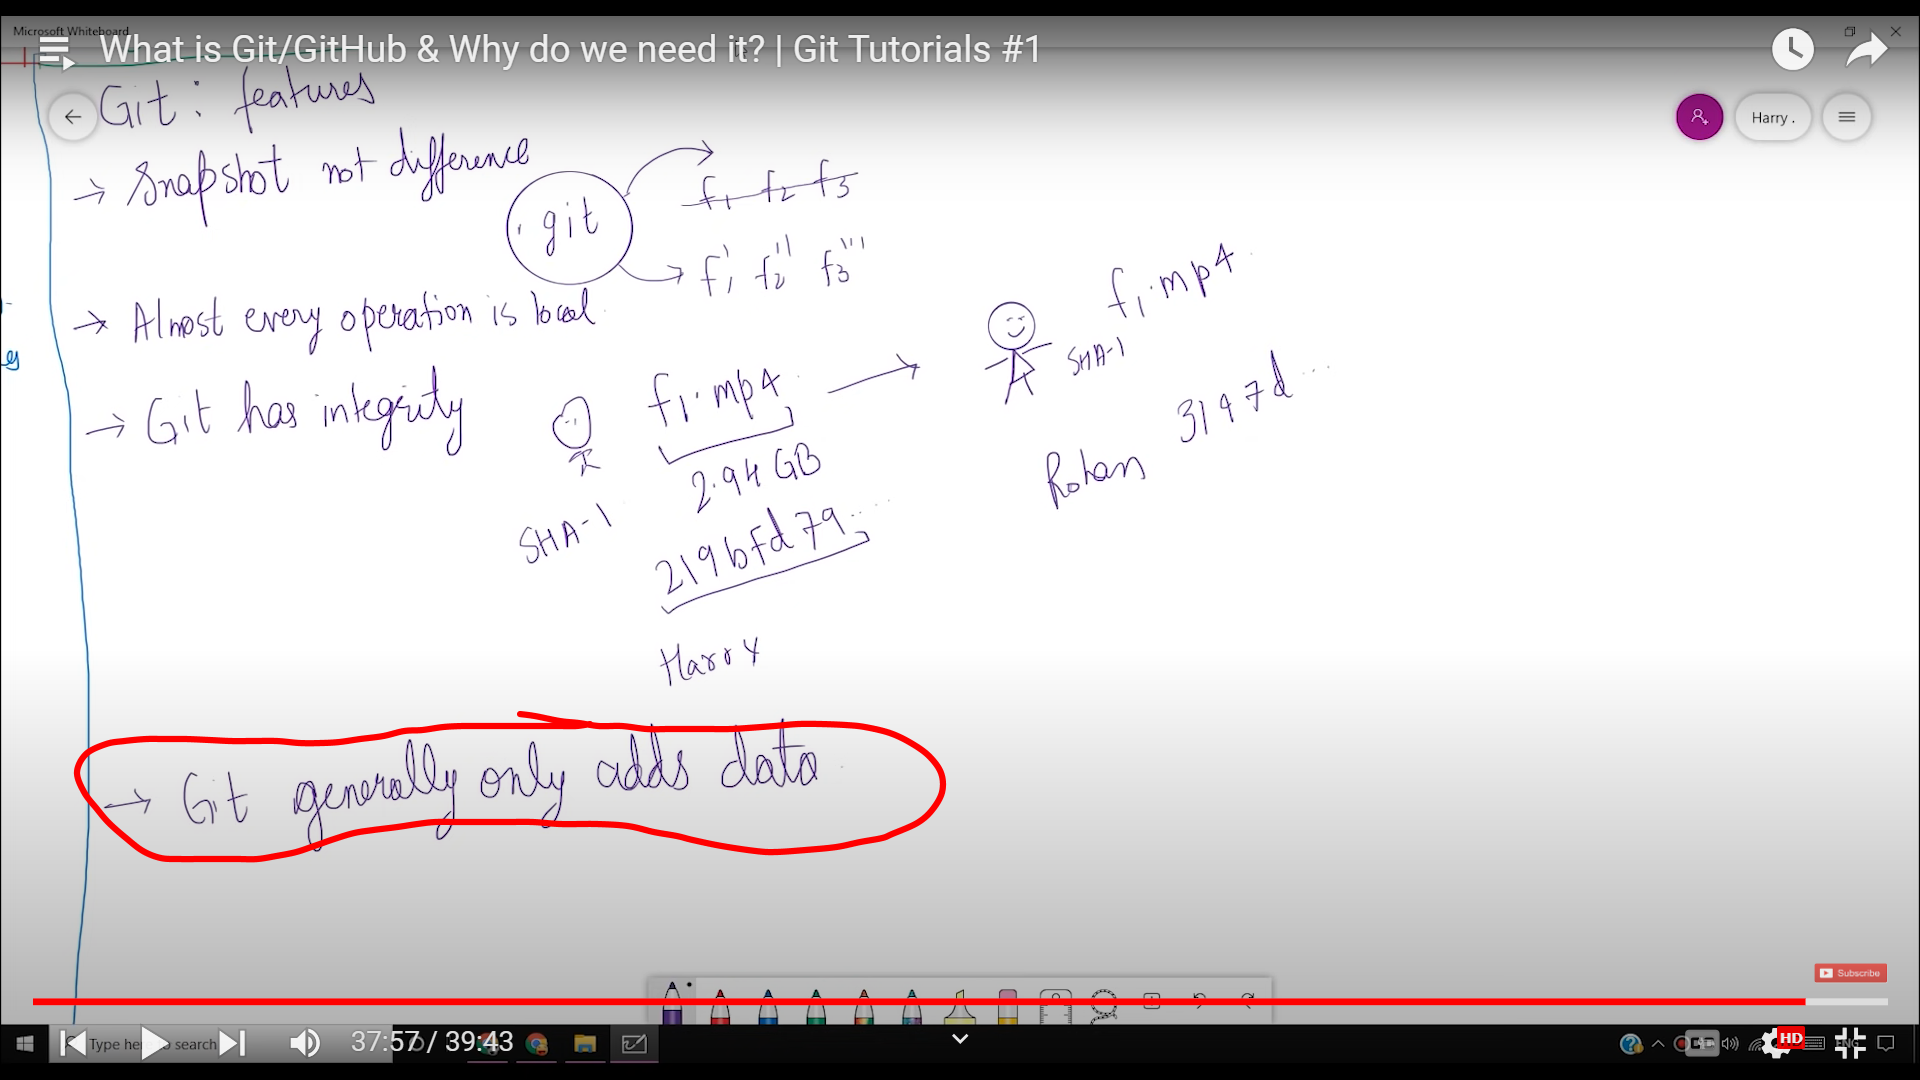 Microsoft Whiteboard
What is Git/GitHub & Why do we need it? | Git Tutorials #1
Git: features
Harry .
→ Snapshot not difference
git
f1 f2 f3
f1' f2'' f3'''
→ Almost every operation is local
→ Git has integrity
f1.mp4
2.94 GB
SHA-1
219bfd79...
Harry
f1.mp4
SHA-1
3197d...
Rohan
→ Git generally only adds data
Subscribe
37:57 / 39:43
Type here to search
HD
ENG